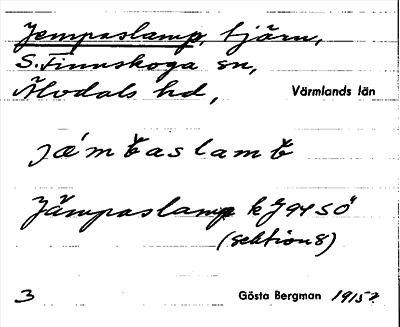 Jempaslamp, tjärn,
S. Finnskoga sn,
Älvdals hd, Värmlands län
Jämpaslamp kJ94SÖ
(sektion 8)
3 Gösta Bergman